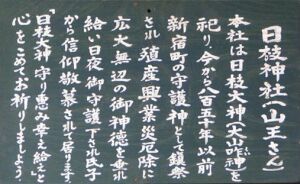 日枝神社(山王さん)
本社は日枝大神(大山咋神)を
祀り、今から八百五十年以前
新宿町の守護神として鎮祭
され殖産興業災厄除に
広大無辺の御神徳を垂れ
給い日夜御守護下され氏子
から信仰敬慕されて居ります
「日枝大神守り恵み幸え給え」と
心をこめてお祈りしましょう。